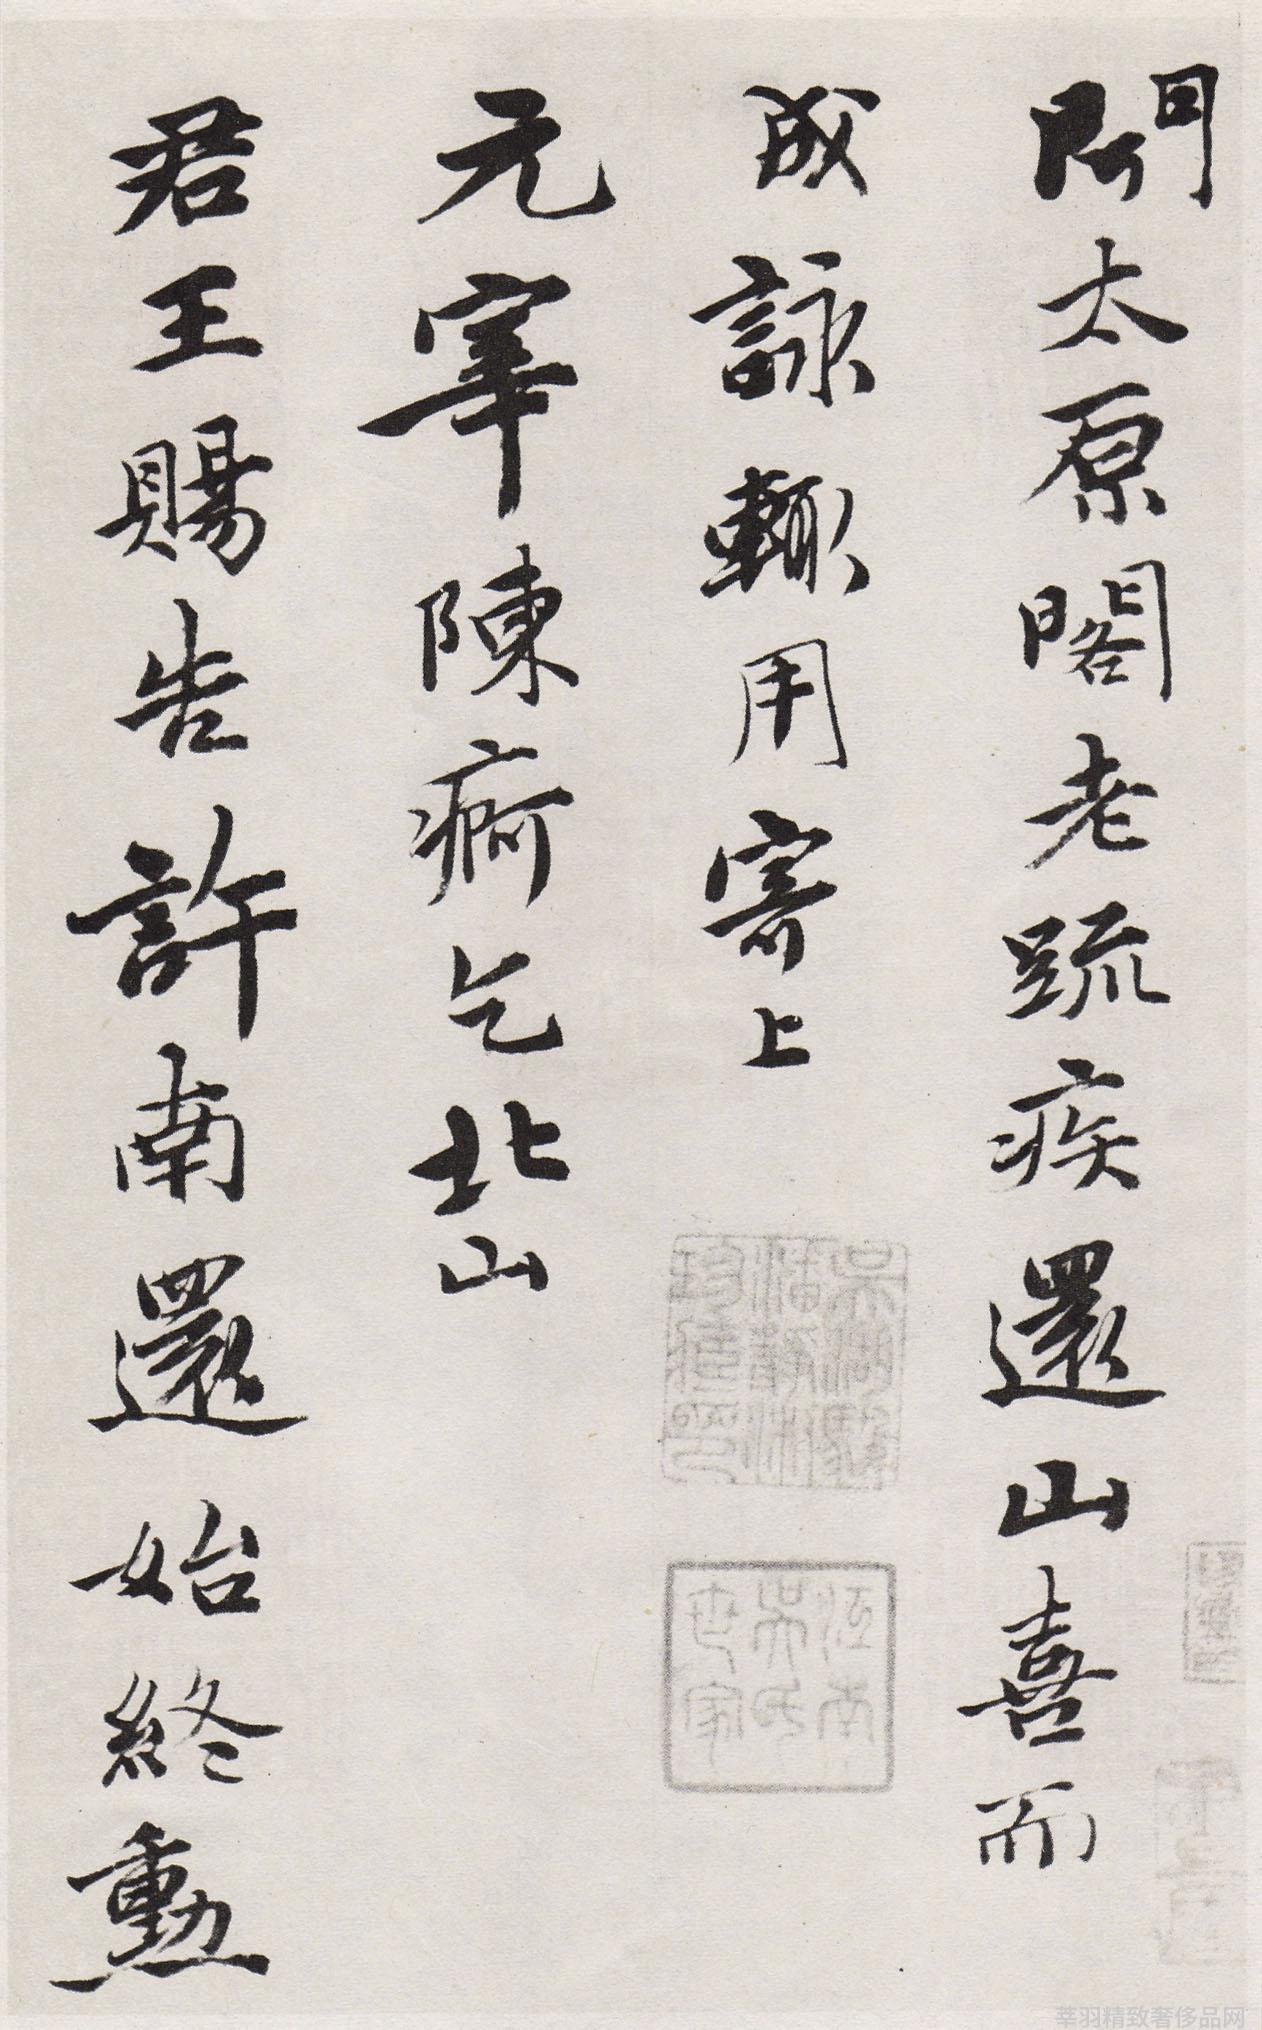 聞太原閣老疏疾還山喜而
成詠輒用寄上
元宰陳痾乞北山
君王賜告許南還始終勳
吳湖颿潘靜淑珍藏印
江南吳氏世家
莘羽精致奢侈品网